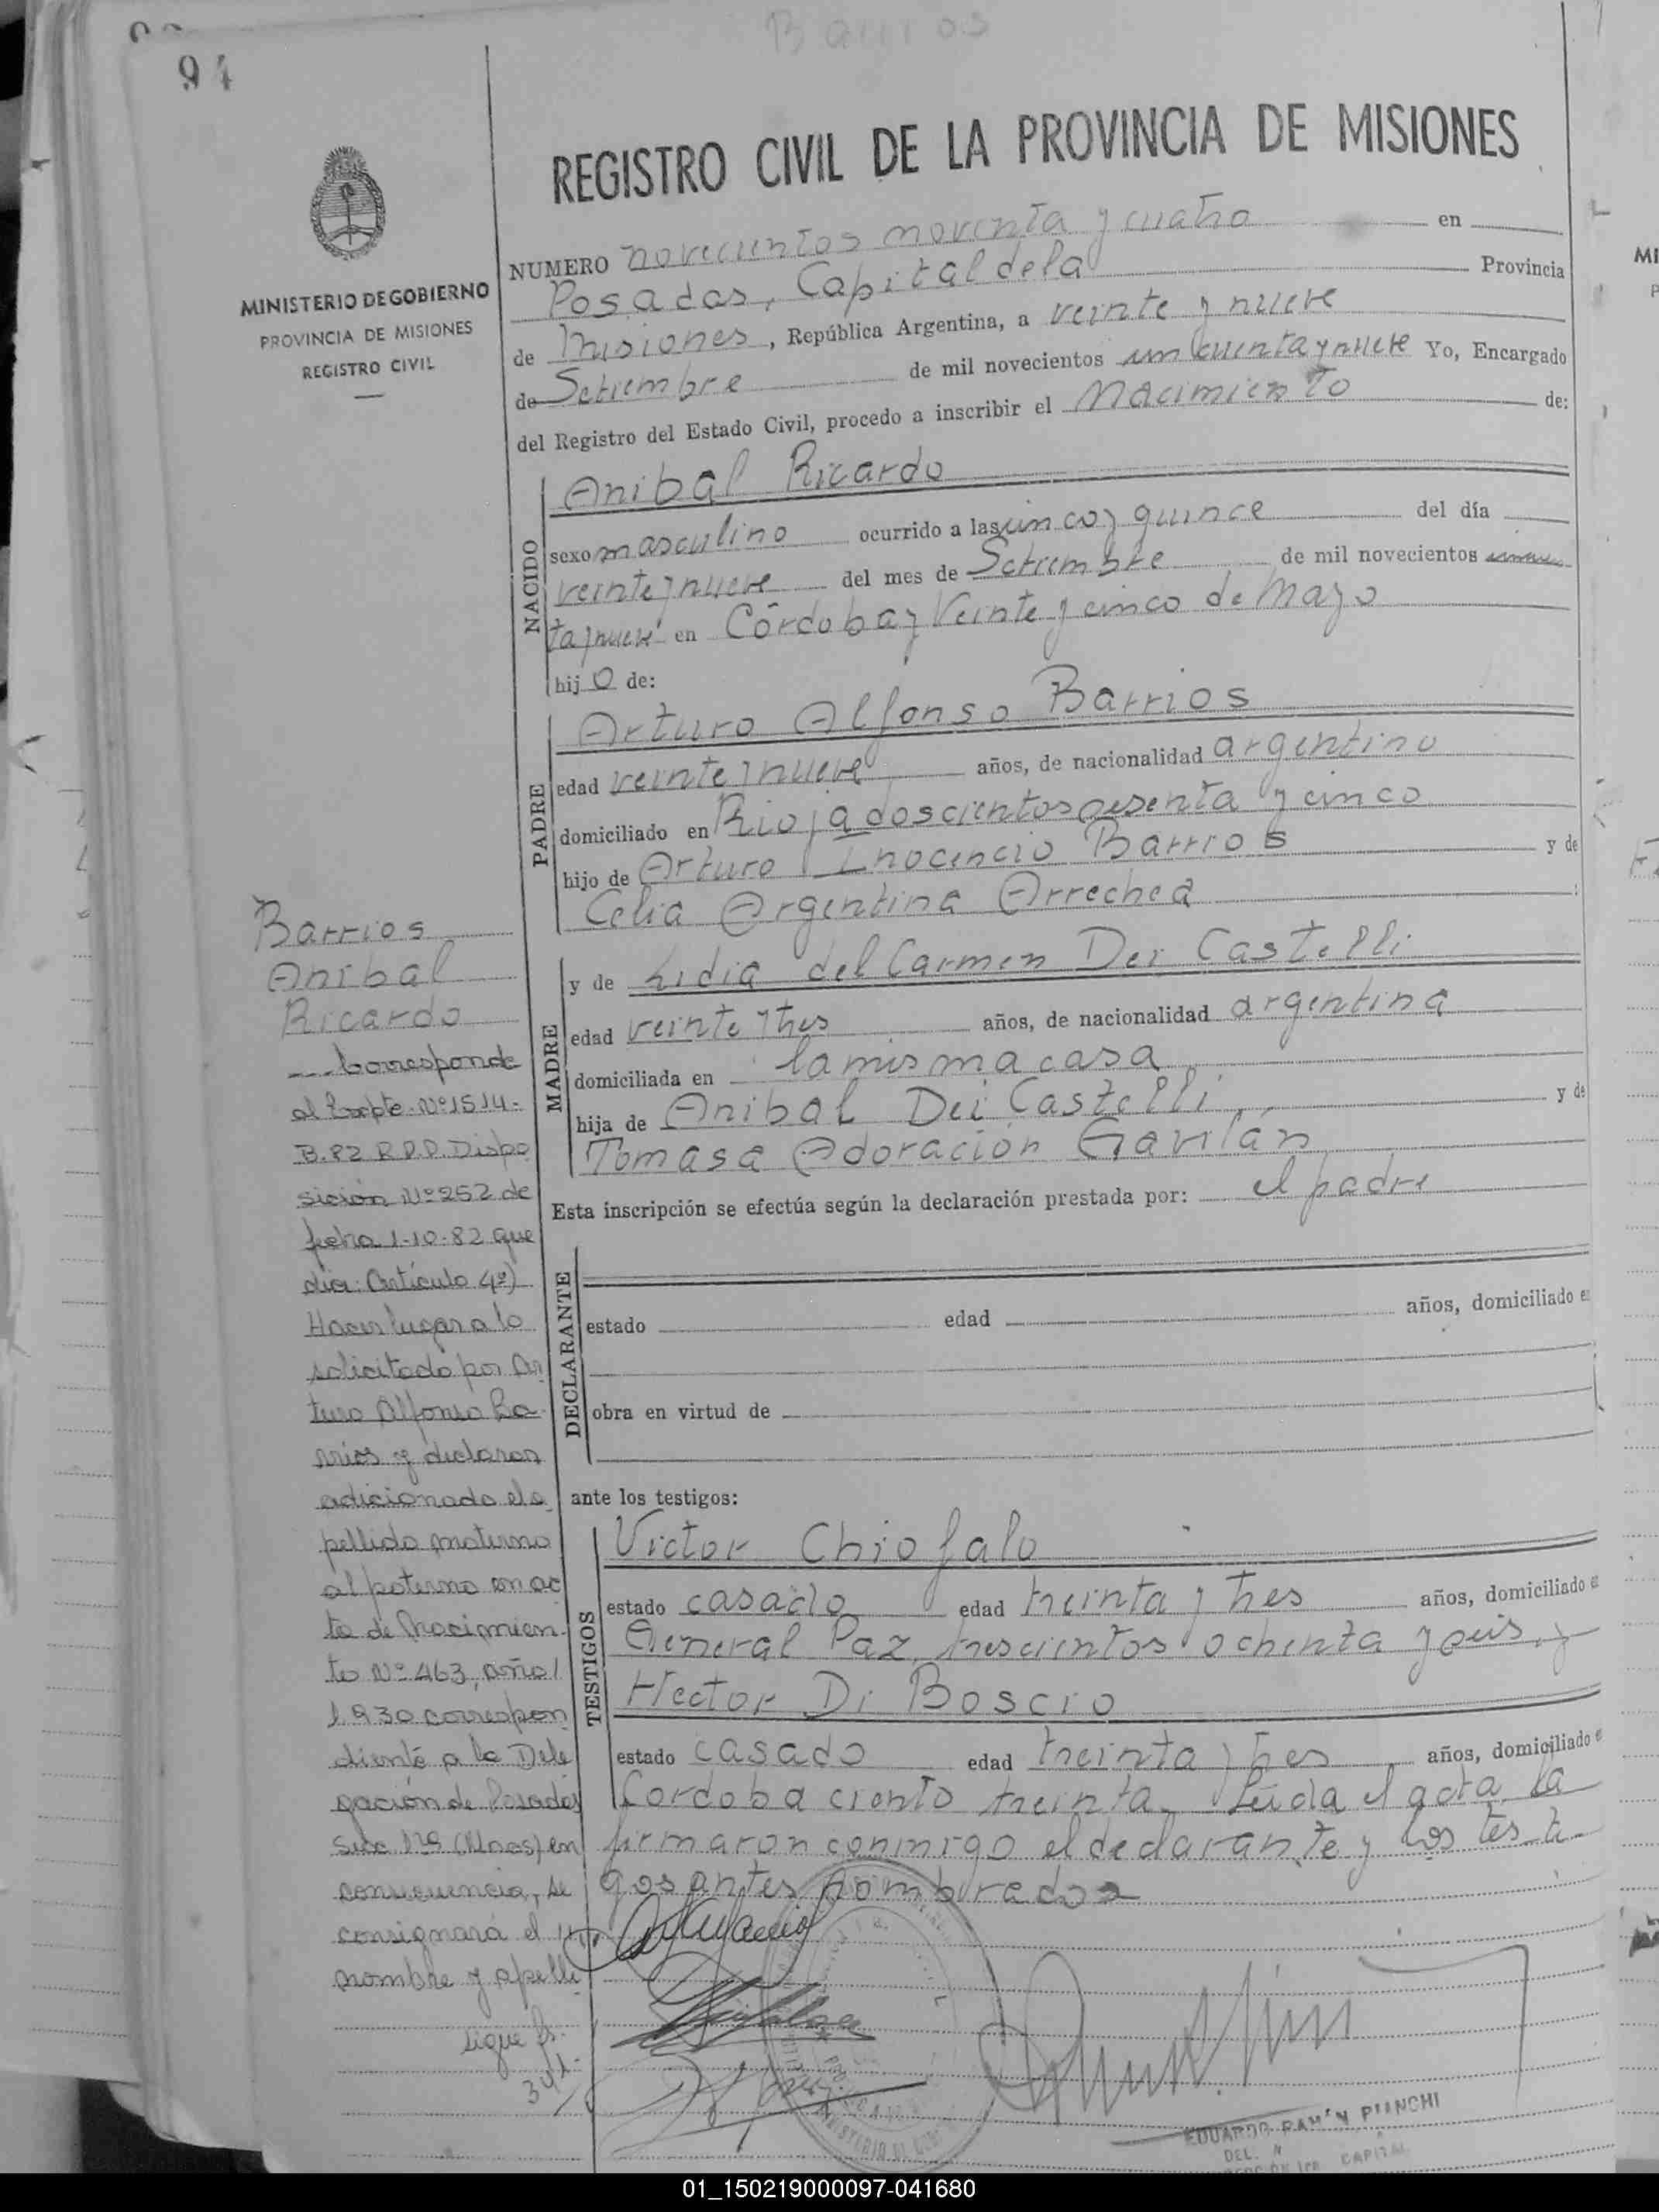 Barrios
94
REGISTRO CIVIL DE LA PROVINCIA DE MISIONES
MINISTERIO DE GOBIERNO
PROVINCIA DE MISIONES
REGISTRO CIVIL
NUMERO novecientos noventa y cuatro en
Posadas, Capital de la Provincia
de Misiones, República Argentina, a veinte y nueve
de Setiembre de mil novecientos cincuenta y nueve Yo, Encargado
del Registro del Estado Civil, procedo a inscribir el Nacimiento de:
NACIDO
Anibal Ricardo
sexo masculino ocurrido a las cinco y quince del día
veinte y nueve del mes de Setiembre de mil novecientos
ta y nueve en Córdoba y Veinte y cinco de Mayo
hijo de:
PADRE
Arturo Alfonso Barrios
edad veinte y nueve años, de nacionalidad argentino
domiciliado en Rioja doscientos sesenta y cinco
hijo de Arturo Inocencio Barrios y de
Celia Argentina Arrechea
MADRE
y de Lidia del Carmen Dei Castelli
edad veinte y tres años, de nacionalidad argentina
domiciliada en la misma casa
hija de Anibal Dei Castelli, y de
Tomasa Adoración Gavilán
Esta inscripción se efectúa según la declaración prestada por: el padre
DECLARANTE
estado edad años, domiciliado e
obra en virtud de
ante los testigos:
TESTIGOS
Victor Chiofalo
estado casado edad treinta y tres años, domiciliado e
General Paz, trescientos ochenta y seis, y
Hector Di Boscio
estado casado edad treinta y tres años, domiciliado e
Cordoba ciento treinta. Leida el acta la
firmaron conmigo el declarante y los testi
gos antes nombrados
Barrios
Anibal
Ricardo
Corresponde
al Expte. Nº 1514-
B.82 R.P.P. Dispo
sición Nº 252 de
fecha 1-10-82 que
dia: Artículo 4º)
Hacer lugar a lo
solicitado por Ar
turo Alfonso Ba
rrios y declaran
adicionado el a
pellido materno
al paterno en ac
ta de Nacimien
to Nº 463, año/
1.930 correspon
diente a la Dele
gación de Posadas
Secc 1ra (Unos) en
consecuencia, se
consignará el
nombre y apelli
sigue fs.
341-
EDUARDO RAMÓN PIANCHI
CAPITAL
01_150219000097-041680